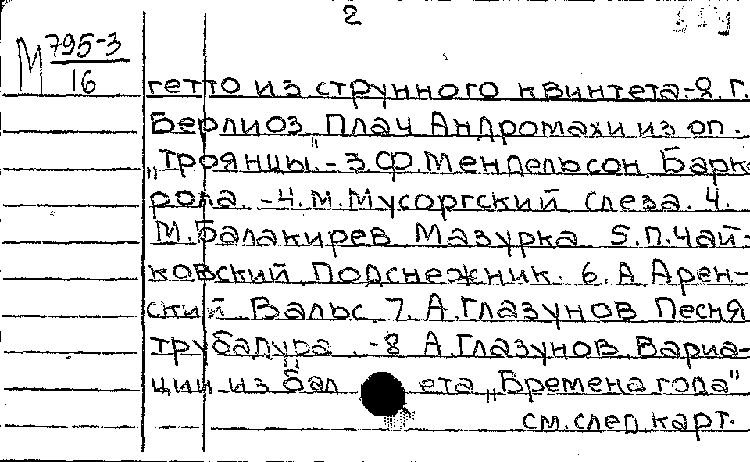 2
М 795-3
16
гетто из струнного квинтета-2. Г.
Берлиоз Плач Андромахи из оп.
„Троянцы".-3.Ф.Мендельсон Барка
рола.-4.М.Мусоргский Слеза. 4.
М.Балакирев Мазурка 5.П.Чай-
ковский Подснежник. 6.А Арен-
ский Вальс 7.А.Глазунов Песня
трубадура.-8 А.Глазунов.Вариа-
ции из балета „Времена года"
см.след карт.